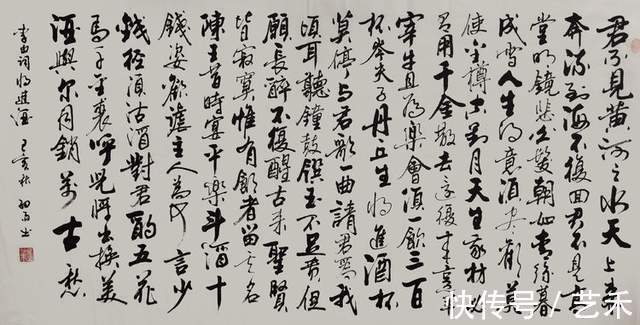 君不見黄河之水天上来
奔流到海不復回君不見高
堂明鏡悲白髮朝如青絲暮
成雪人生得意須尽歡莫
使金樽空對月天生我材必
有用千金散去還復来烹羊
宰牛且為樂會須一飲三百
杯岑夫子丹丘生將進酒杯
莫停与君歌一曲請君為我
傾耳聽鐘鼓饌玉不足貴但
願長醉不復醒古来聖賢
皆寂寞惟有飲者留其名
陳王昔時宴平樂斗酒十
錢恣歡謔主人為何言少
錢徑須沽酒對君酌五花
馬千金裘呼兒將出換美
酒與尔同銷萬古愁
李白詞將進酒 己亥秋 书
快传号/艺禾